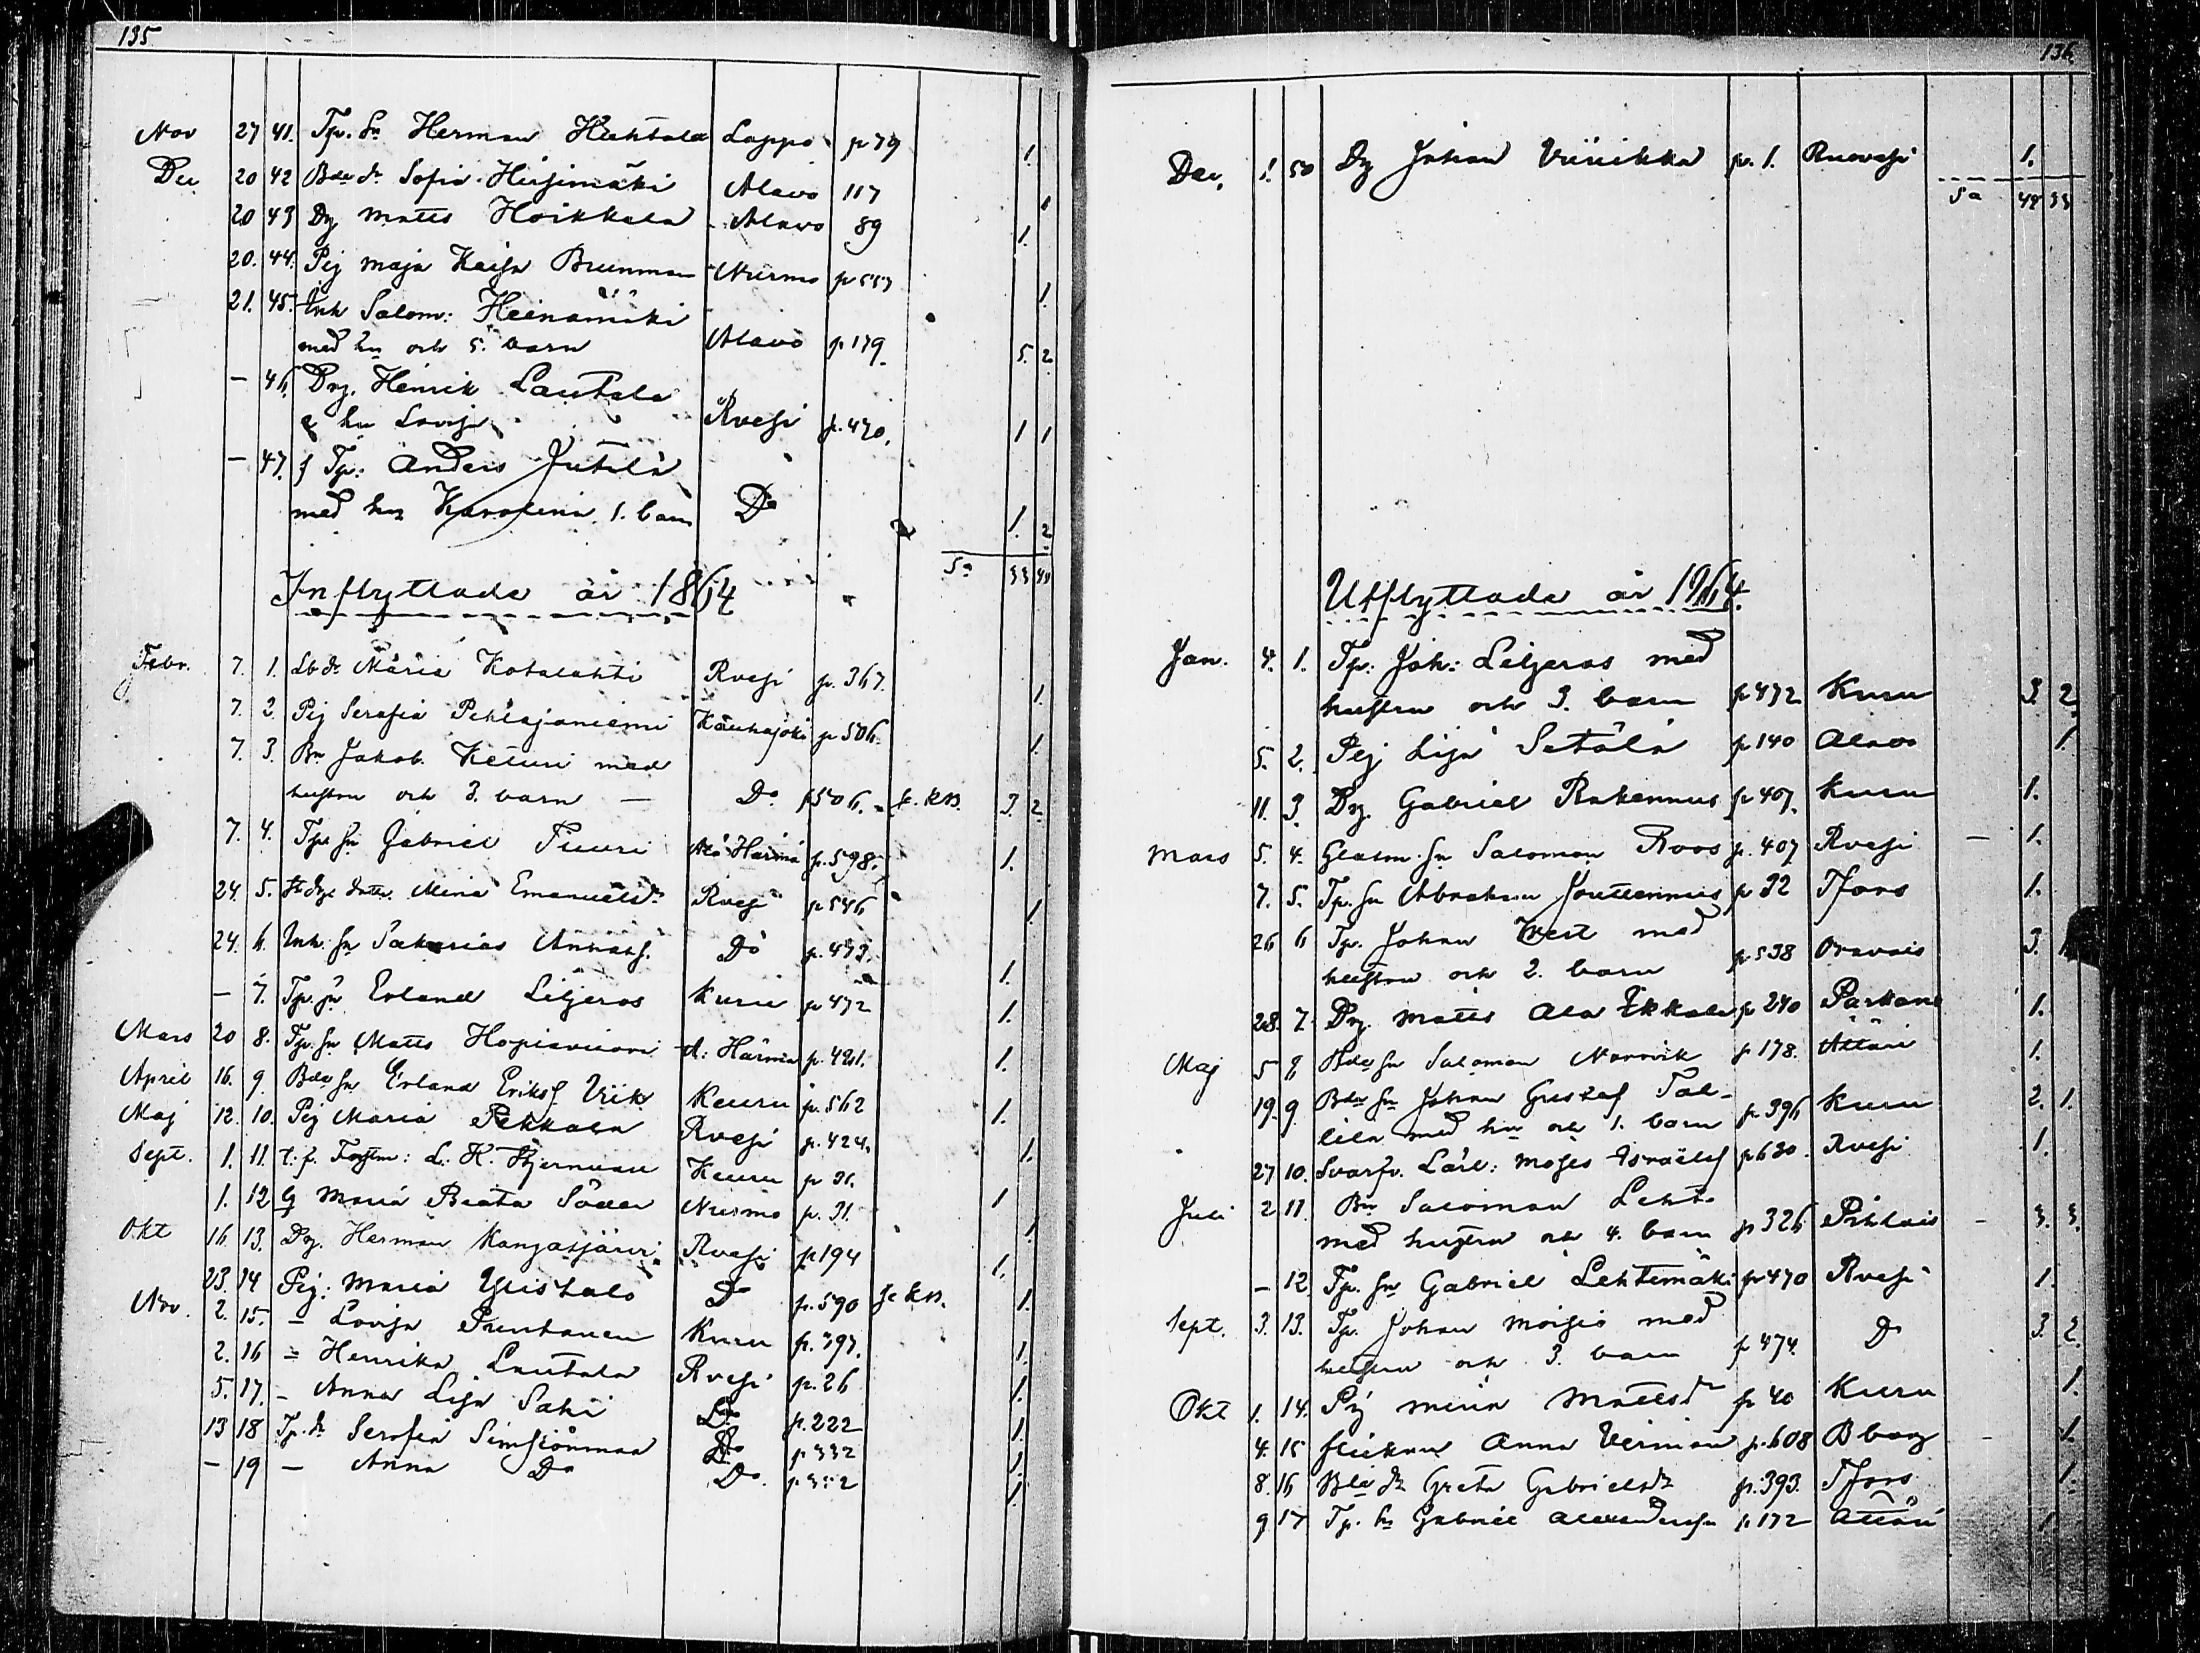 135
Nov 27 41. Tp. Sn Herman Huhtala Lappo p 79 1.
Dec 20 42 Bde dr Sofia Hirsimäki Alavo 117 1
20 43 Dg Matts Hoikkala Alavo 89 1.
20. 44. Pig Maja Kaisa Brunman Nurmo p 557 1.
21. 45. Inh Salom: Heinämäki
med hu och 5. barn Alavo p 179. 5. 2
– 46. Drg. Henrik Lautala
& hu Lovisa Rvesi p. 470. 1 1
– 47. f Tp: Anders Jutila
med hu Karolina 1. barn Do 1. 2
Sa 33
Inflyttade år 1864
Febr. 7. 1. Lbdr Maria Kotalahti Rvesi p. 367. 1.
7. 2. Pig Serafia Pehlajaniemi Kauhajoki p 506. 1.
7. 3. Bn Jakob Keturi med
hustru och 3. barn – Do p 506. fr. KB. 3. 2.
7. 4. Tpe Sn Gabriel Puuri Ala Härmä p. 598. 1.
24. 5. Mina Emanuelsdr Rvesi p 546 1.
24. 6. Inh. Sn Sakarias Do p. 473. 1.
– 7. Tp. Sn Erland Liljeros Kuru p 472 1.
Mars 20 8. Tp. Sn Matts Hopiavuori A: Härmä p. 421. 1.
April 16. 9 Bde Sn Erland Eriks. Vik Keuru p. 562 1.
Maj 12. 10. Pig Maria Pekkala Rvesi p. 424. 1.
Sept. 1. 11. t. f. Forstm: L. H. Stjernvan Keuru p 31. 1
1. 12 G Maria Beata Söder Nurmo p. 31 1.
Okt 16. 13. Drg. Herman Kangasjärvi Rvesi p 194 1.
23. 14 Pig: Maria Ylistalo Do p. 590 fr KB. 1.
Nov. 2. 15. – Lovisa Pentanen Kuru p. 397. 1.
2. 16 = Henrika Lautala Rvesi p. 26 1.
5. 17. – Anna Lisa Saki Do p. 222 1.
13 18 Tp. dr Serafia Simsiönmaa Do p 332 1.
– 19 – Anna Do Do. p 332 1.
136.
Dec. 1. 50 Dg Johan Viinikka p. 1. Ruovesi 1.
Sa 48 33
Utflyttade år 1864.
Jan. 4. 1. Tp: Joh: Liljeros med
hustru och 3. barn p 472 Kuru 3. 2.
5. 2. Pig Lisa Setälä p 140 Alavo 1.
11. 3. Drg. Gabriel Rakennus p 407. Kuru 1.
Mars 5. 4. Glasm. Sn Salomon Roos p. 407 Rvesi – 1.
7. 5. Tp. Sn Abraham Jouttennus p 92 Tfors 1.
26 6 Tp. Johan West med
hustru och 2. barn p 538 Oravais 3. 1
28. 7. Drg. Matts Ala Ekkala p 240 Parkano 1.
Maj 5 8 Bde Sn Salomon Norrvik p 178. Ätsäri 1.
19. 9. Bde Sn Johan Gustaf Tal-
lila med hu och 1. barn p. 396 Kuru 2. 1.
27 10. Svarfv. Lärl: Moses Israelss p 630. Rvesi 1.
Juli 2 11. Bn Salomon Leht.
med hustru och 4. barn p 326 Pihlais – 3. 3.
– 12. Tp. Sn Gabriel Lehtimäki p 470 Rvesi 1.
Sept. 3. 13. Tp. Johan Moisio med
hustru och 3. barn p 474. Do 3. 2.
Okt 1. 14. Pig Mina Mattsdr p 40 Kuru 1.
4. 15 flickan Anna Verman p. 608 Bborg – 1.
8. 16 Bde dr Greta Gabrielsdr p. 393. Tfors 1.
9 17 Tp. Sn Gabriel Alexandersn p 172 Ätsäri 1